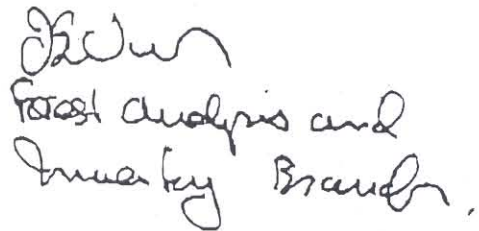 Forest Analysis and
Inventory Branch.